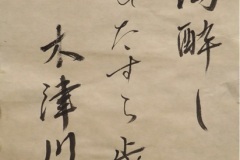 酔し
たすら歩
木津川